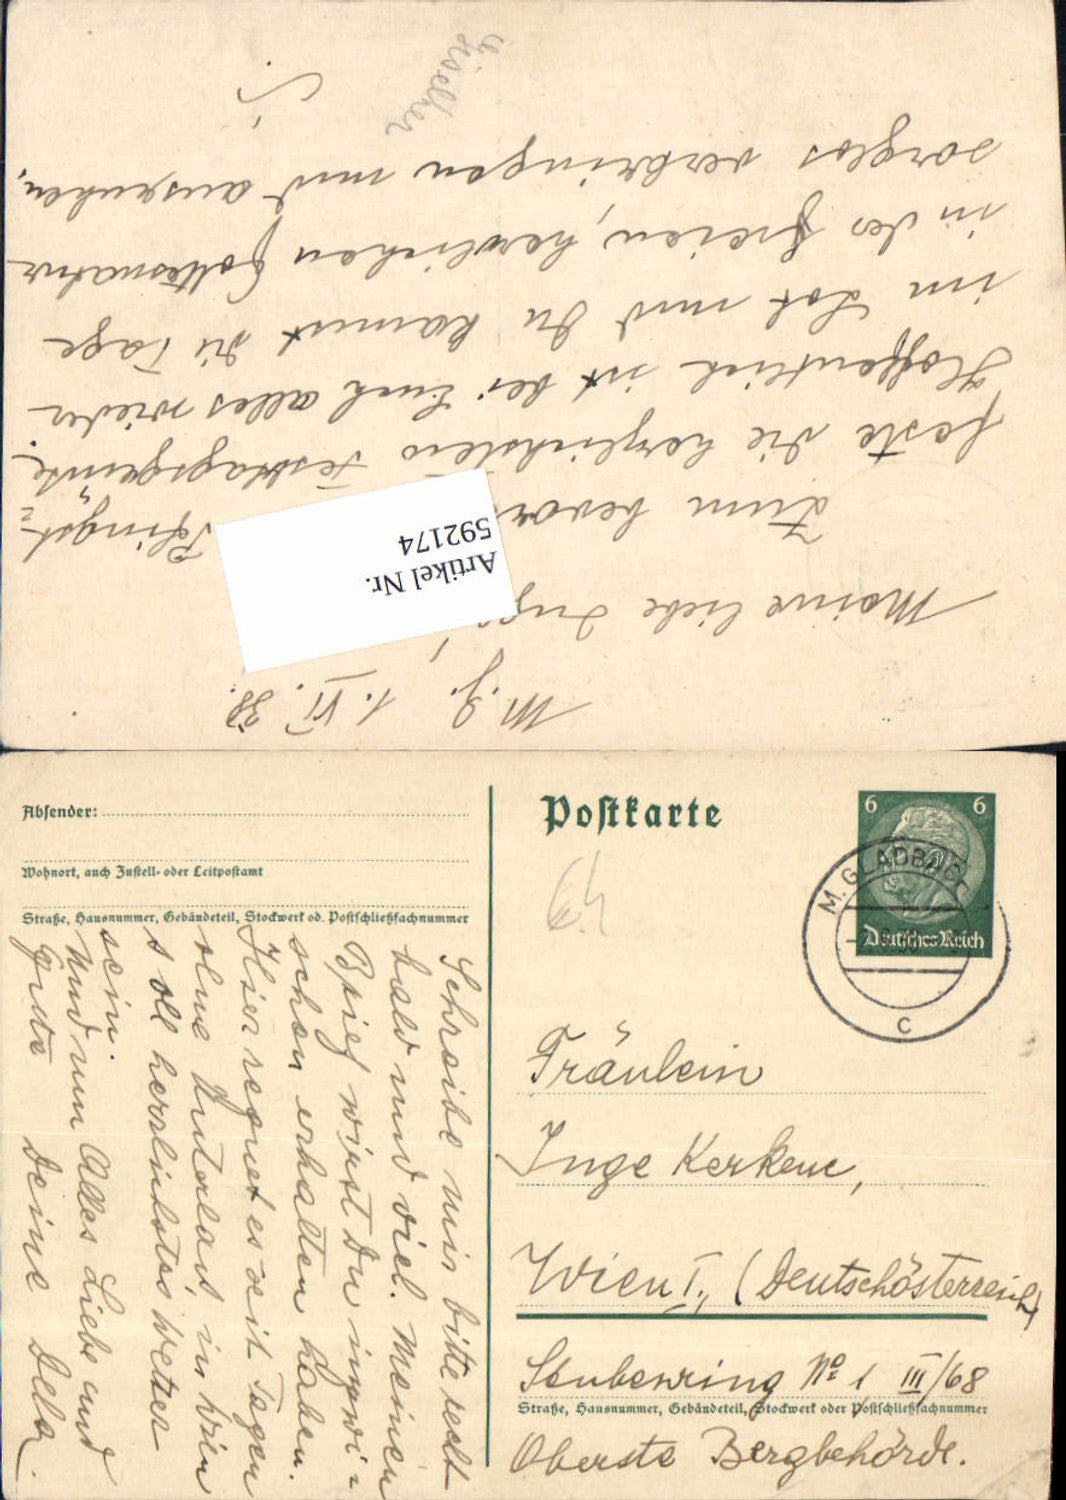 M. G., 1. VI. 38.
Meine liebe Inge
Zum bevor Pfingst=
feste die herzlichsten Festtagsgrüße.
Hoffentlich ist bei Euch alles wieder
im Lot und Du kannst die Tage
in der freien, herrlichen Gottesnatur
sorglos verbringen und ausruhen.
Artikel Nr.
592174
Absender:
Wohnort, auch Zustell- oder Leitpostamt
Straße, Hausnummer, Gebäudeteil, Stockwerk od. Postschließfachnummer
Schreibe mir bitte recht
bald und viel. Meinen
Brief wirst Du inzwi=
schen erhalten haben.
Hier regnet es seit Tagen
ohne Unterlaß, in Wien
soll herrlichstes Wetter
sein.
Und nun Alles Liebe und
Gute Deine
Postkarte
6 6
Deutsches Reich
M. GLADBACH
c
Fräulein
Inge Kerkene,
Wien I., (Deutschösterreich)
Stubenring No 1, III/68
Straße, Hausnummer, Gebäudeteil, Stockwerk oder Postschließfachnummer
Oberste Bergbehörde.